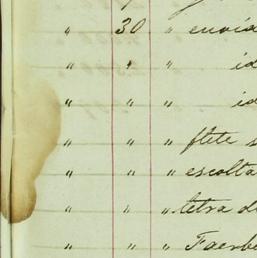 " 30 " envia
" " " id
" " " id
" " " flete s
" " " escolta
" " " letra d
" " " Faerb